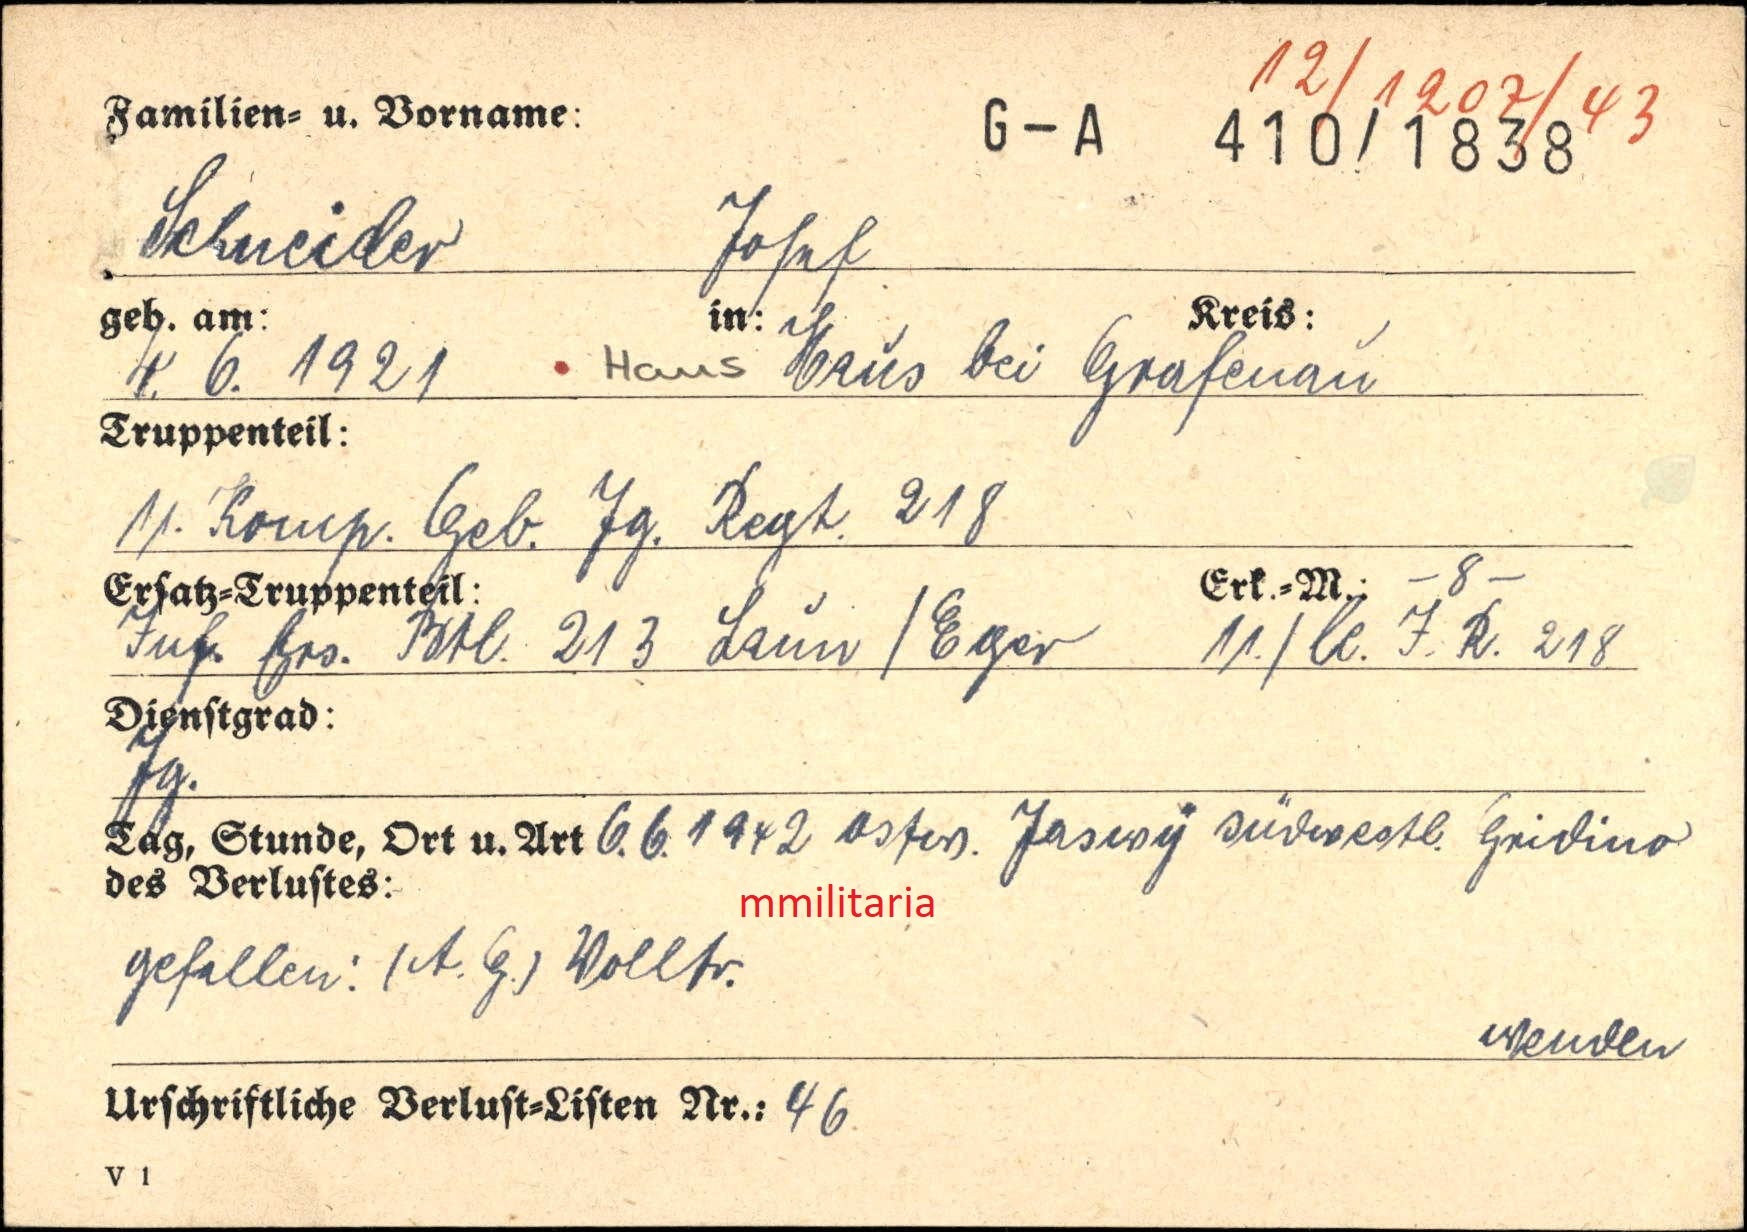 12/1207/43
Familien- u. Vorname: G-A 410/1838
Schneider Josef
geb. am: in: Kreis:
4. 6. 1921 • Haus Haus bei Grafenau
Truppenteil:
11. Komp. Geb. Jg. Regt. 218
Ersatz-Truppenteil: Erk.-M.: -8-
Inf. Ers. Btl. 213 Laun / Eger 11./ J. R. 218
Dienstgrad:
Jg.
Tag, Stunde, Ort u. Art 6. 6. 1942 ostw. Jaswÿ südwestl. Gridino
des Verlustes:
mmilitaria
gefallen: (A. G.) Volltr.
wenden
Urschriftliche Verlust-Listen Nr.: 46
V 1